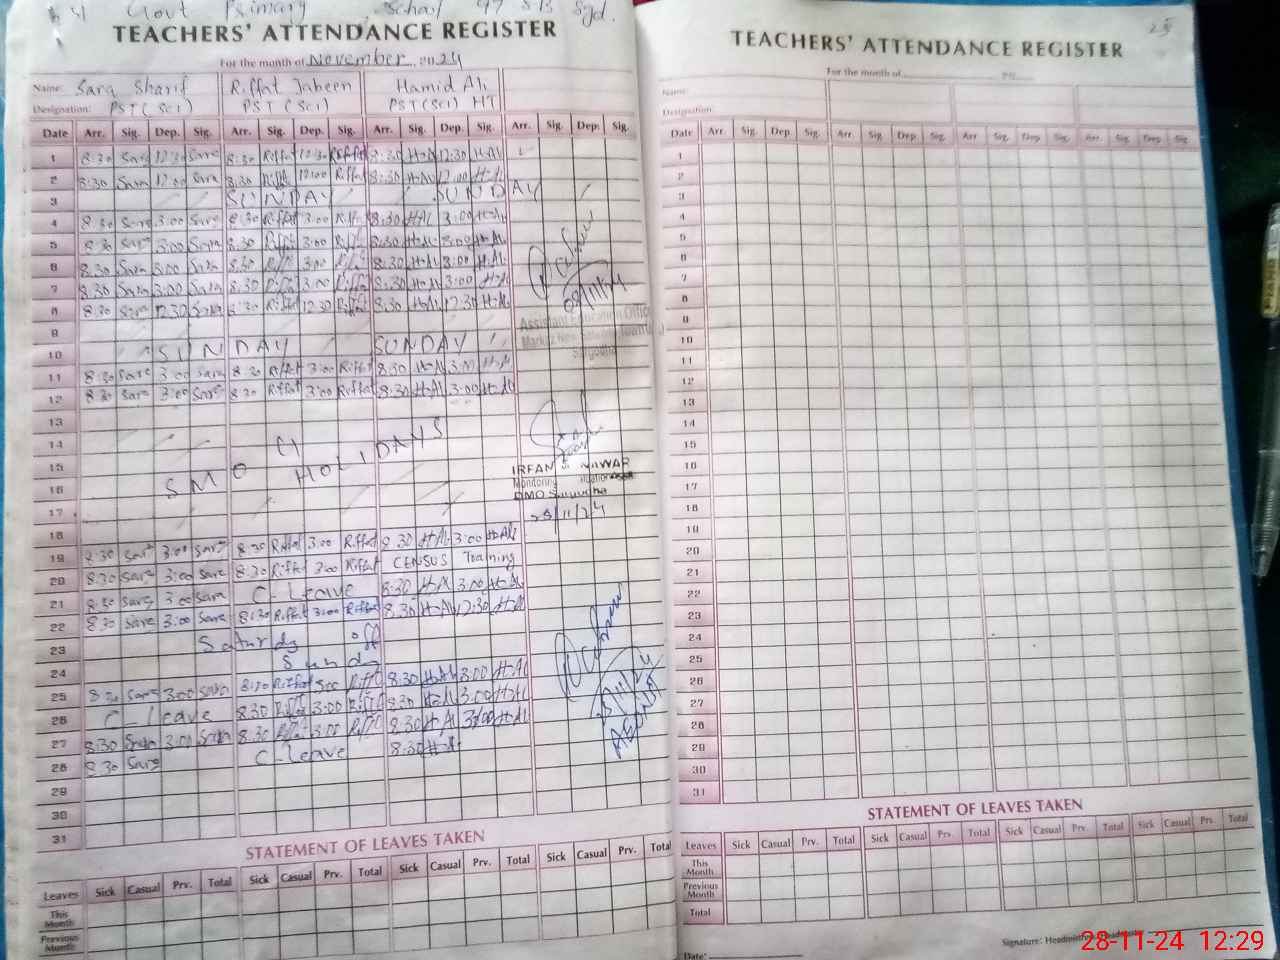 Govt Primary School 97 SB Sgd.
TEACHERS' ATTENDANCE REGISTER
For the month of November, 2024
Name: Sara Sharif Riffat Jabeen Hamid Ali
Designation: PST (Sci) PST (Sci) PST (Sci) HT
Date Arr. Sig. Dep. Sig. Arr. Sig. Dep. Sig. Arr. Sig. Dep. Sig. Arr. Sig. Dep. Sig.
1 8:30 Sara 12:30 Sara 8:30 Riffat 12:30 Riffat 8:30 H-Al 12:30 H-Al
2 8:30 Sara 12:00 Sara 8:30 Riffat 12:00 Riffat 8:30 H-Al 12:00 H-Al
3 SUNDAY SUNDAY
4 8:30 Sara 3:00 Sara 8:30 Riffat 3:00 Riffat 8:30 H-Al 3:00 H-Al
5 8:30 Sara 3:00 Sara 8:30 Riffat 3:00 Riffat 8:30 H-Al 3:00 H-Al
6 8:30 Sara 3:00 Sara 8:30 Riffat 3:00 Riffat 8:30 H-Al 3:00 H-Al
7 8:30 Sara 3:00 Sara 8:30 Riffat 3:00 Riffat 8:30 H-Al 3:00 H-Al
8 8:30 Sara 12:30 Sara 8:30 Riffat 12:30 Riffat 8:30 H-Al 12:30 H-Al
Assistant Education Officer
9
10 SUNDAY SUNDAY
11 8:30 Sara 3:00 Sara 8:30 Riffat 3:00 Riffat 8:30 H-Al 3:00 H-Al
12 8:30 Sara 3:00 Sara 8:30 Riffat 3:00 Riffat 8:30 H-Al 3:00 H-Al
13
14
15 SMOG HOLIDAYS
IRFAN NAWAR
Monitoring
DMO Sargodha
16
17
18
19 8:30 Sara 3:00 Sara 8:30 Riffat 3:00 Riffat 8:30 H-Al 3:00 H-Al
20 8:30 Sara 3:00 Sara 8:30 Riffat 3:00 Riffat CENSUS Training
21 8:30 Sara 3:00 Sara C-Leave 8:30 H-Al 3:00 H-Al
22 8:30 Sara 3:00 Sara 8:30 Riffat 3:00 Riffat 8:30 H-Al 12:30 H-Al
23 Saturday off
24 Sunday
25 8:30 Sara 3:00 Sara 8:30 Riffat 3:00 Riffat 8:30 H-Al 3:00 H-Al
26 C-Leave 8:30 Riffat 3:00 Riffat 8:30 H-Al 3:00 H-Al
27 8:30 Sara 3:00 Sara 8:30 Riffat 3:00 Riffat 8:30 H-Al 3:00 H-Al
28 8:30 Sara C-Leave 8:30 H-Al
29
30
31
STATEMENT OF LEAVES TAKEN
Leaves Sick Casual Prv. Total Sick Casual Prv. Total Sick Casual Prv. Total Sick Casual Prv. Total
This Month
Previous Month
25
TEACHERS' ATTENDANCE REGISTER
For the month of 20
Name:
Designation:
Date Arr. Sig. Dep. Sig. Arr. Sig. Dep. Sig. Arr. Sig. Dep. Sig. Arr. Sig. Dep. Sig.
1
2
3
4
5
6
7
8
9
10
11
12
13
14
15
16
17
18
19
20
21
22
23
24
25
26
27
28
29
30
31
STATEMENT OF LEAVES TAKEN
Leaves Sick Casual Prv. Total Sick Casual Prv. Total Sick Casual Prv. Total Sick Casual Prv. Total
This Month
Previous Month
Total
Signature: Headmistress/Headmaster
Date:
28-11-24 12:29